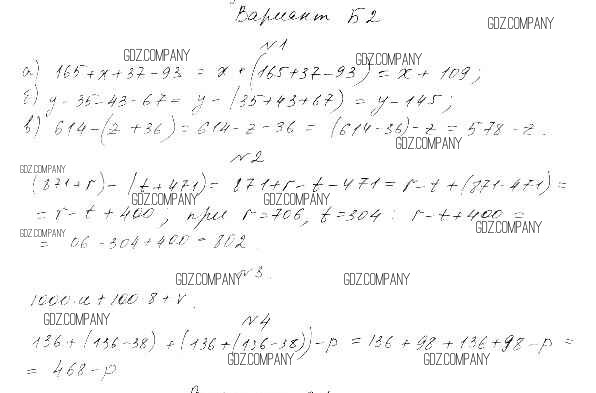 Вариант Б2
GDZ.COMPANY
№1
GDZ.COMPANY GDZ.COMPANY
а) 165+x+37-93 = x+(165+37-93) = x+109;
б) y-35-43-67 = y-(35+43+67) = y-145;
в) 614-(z+36) = 614-z-36 = (614-36)-z = 578-z.
GDZ.COMPANY
№2
GDZ.COMPANY
(871+r)-(t+471) = 871+r-t-471 = r-t+(871-471) =
GDZ.COMPANY GDZ.COMPANY
= r-t+400, при r=706, t=304: r-t+400 =
GDZ.COMPANY GDZ.COMPANY
= 06-304+400 = 802.
№3.
GDZ.COMPANY GDZ.COMPANY
1000·u+100·8+v.
GDZ.COMPANY
№4
136+(136-38)+(136+(136-38))-p = 136+98+136+98-p =
GDZ.COMPANY GDZ.COMPANY
= 468-p